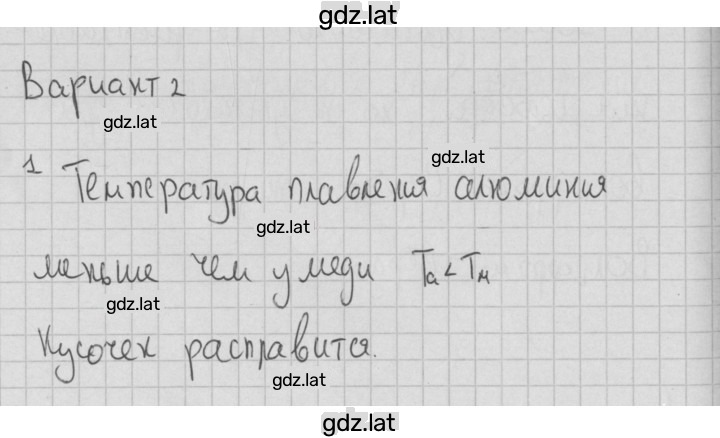 gdz.lat
Вариант 2
gdz.lat
gdz.lat
1 Температура плавления алюминия
gdz.lat
меньше чем у меди Tа < Tм
gdz.lat
Кусочек расплавится.
gdz.lat
gdz.lat